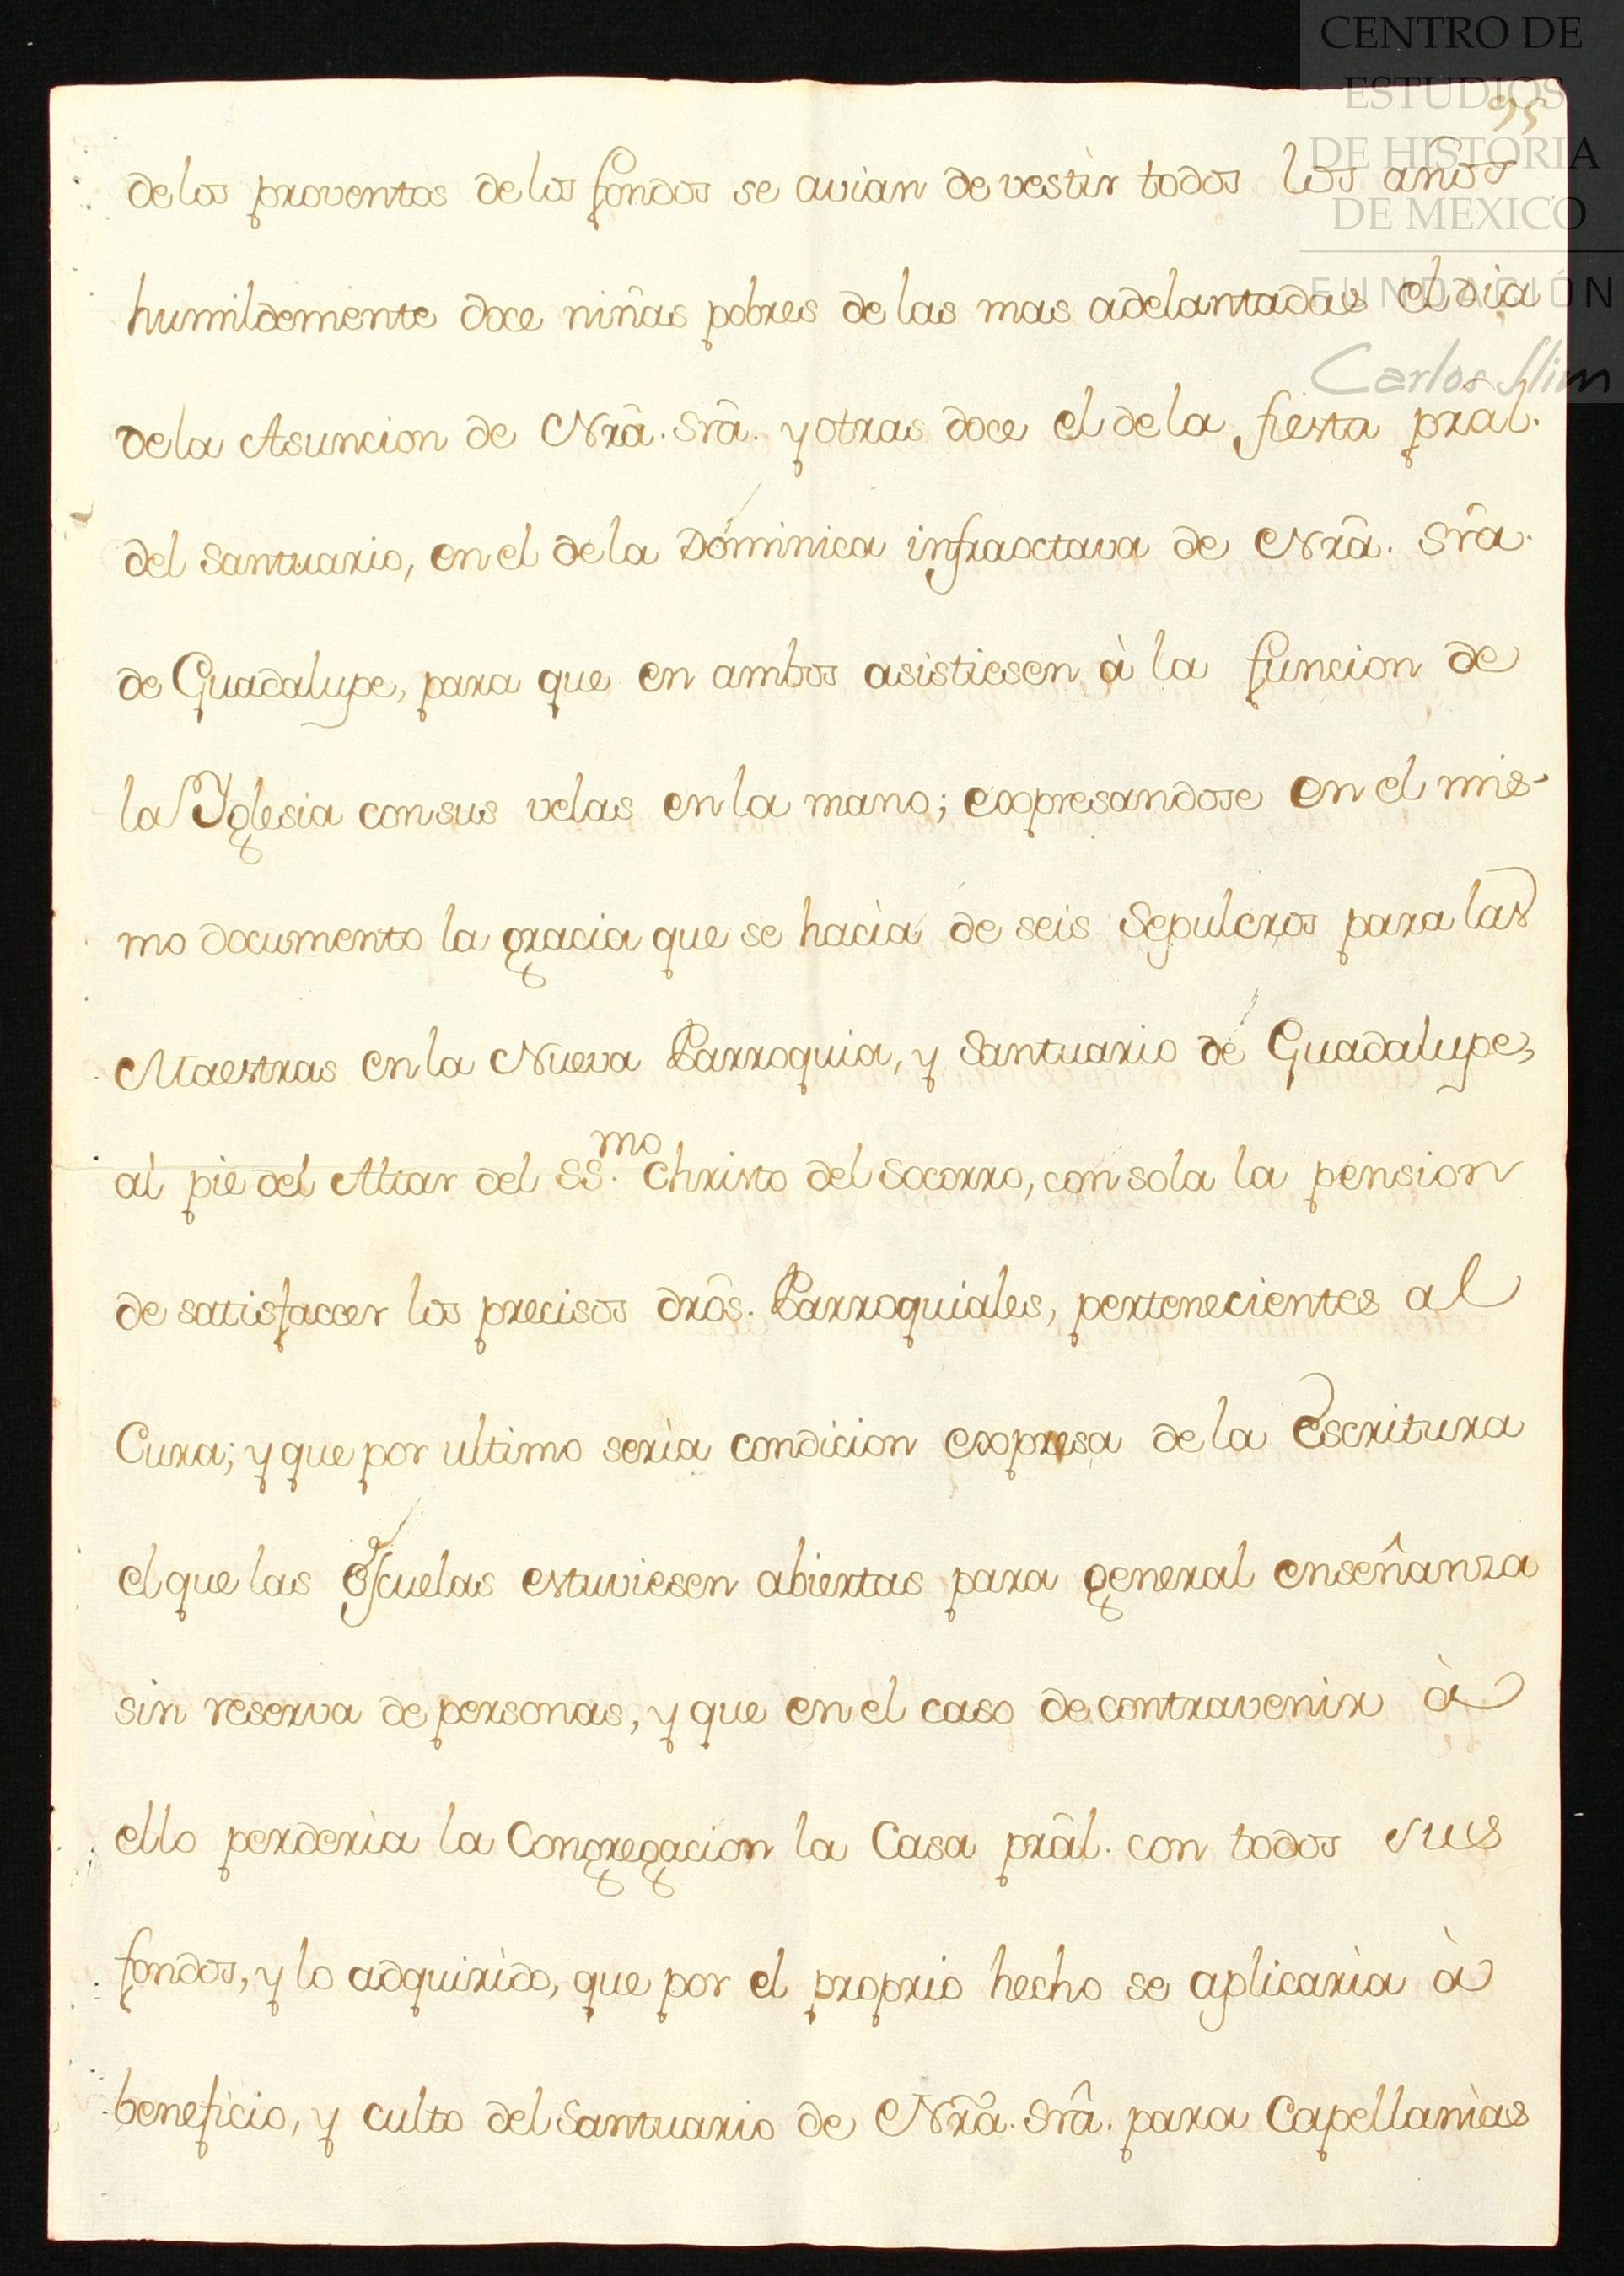 CENTRO DE
ESTUDIOS
DE HISTORIA
DE MEXICO
FUNDACIÓN
Carlos Slim
95
delos proventos delos fondos se avian de vestìr todos los años
humildemente doce niñas pobres delas mas adelantadas el dia
dela Asuncion de Nrâ. Srâ. y otras doce el dela fiesta prâl.
del Santuario, en el dela Dominica infraoctava de Nrâ. Srâ.
de Guadalupe, para que en ambos asistiesen à la funcion de
la Yglesia con sus velas en la mano; expresandose en el mis-
mo documento la gracia que se hacìa de seis Sepulcros para las
Maestras en la Nueva Parroquia, y Santuario de Guadalupe,
al pie del Altar del SS.mo Christo del Socorro, con sola la pension
de satisfaccer los precisos drôs. Parroquiales, pertenecientes al
Cura; y que por ultimo serìa condicion expresa de la Escritura
el que las Escuelas estuviesen abiertas para general enseñanza
sin reserva de personas, y que en el caso de contravenir à
ello perderìa la Congregacion la Casa prâl. con todos sus
fondos, y lo adquirido, que por el proprio hecho se aplicarìa à
beneficio, y culto del Santuario de Nrâ. Srâ. para Capellanìas